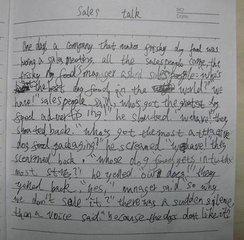 Sales talk
NO.
Date
One day a company that makes frisky dog food was
having a sales meeting, all the sales people
frisky dog food manager asked sales people: who's
the best dog food in the world? we
have! sales people who's got the greatest dog
food advertising" he shouted "we have! they
shouted back. "who's got the most attractive
dog food packaging? he screamed "we have! they
screamed back. "whose dog food gets into the
most stores?" he yelled our dogs! they
yelled back "yes," manager said so why
we don't sale "it?" there was a sudden silence
then a voice said "because the dogs don't like it!"